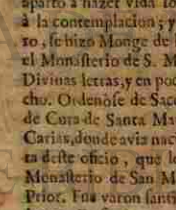 aparto a hazer vida so
à la contemplacion; y
so, se hizo Monge de
el Monasterio de S. M
Divinas letras, y en poc
cho. Ordenòse de Sace
de Cura de Santa Ma
Carias, donde avia nac
ta deste oficio, que le
Monasterio de San M
Prior. Fue varon santi